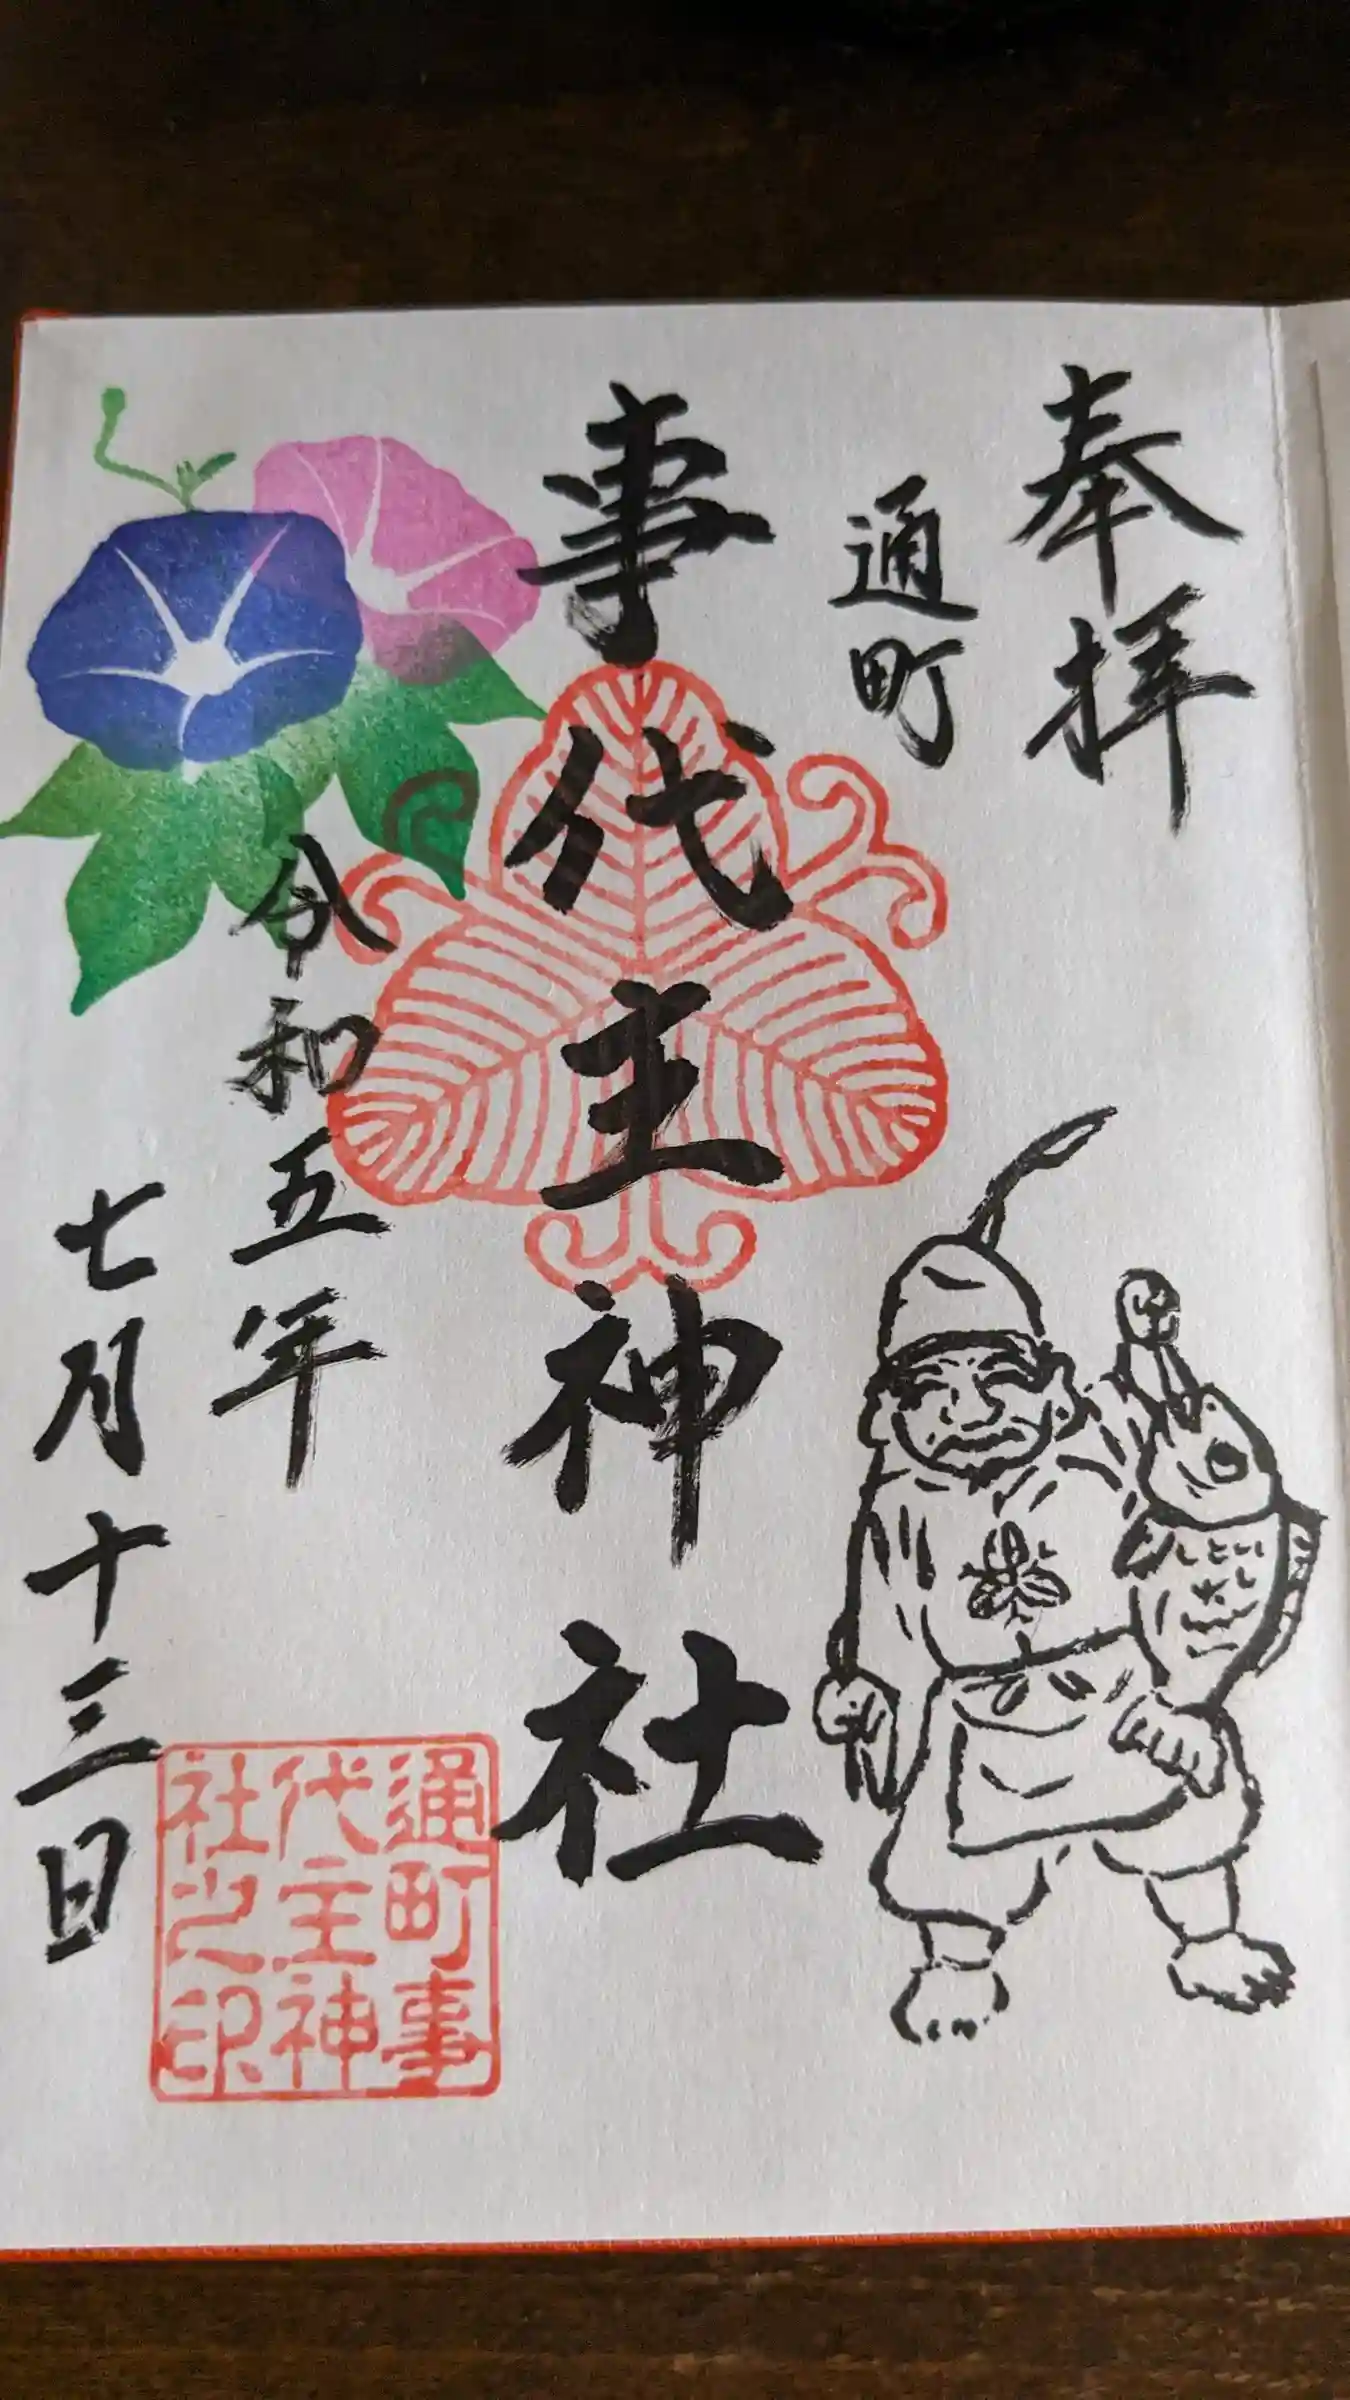 奉拝
通町
事代主神社
令和五年
七月十三日
通町事
代主神
社之印